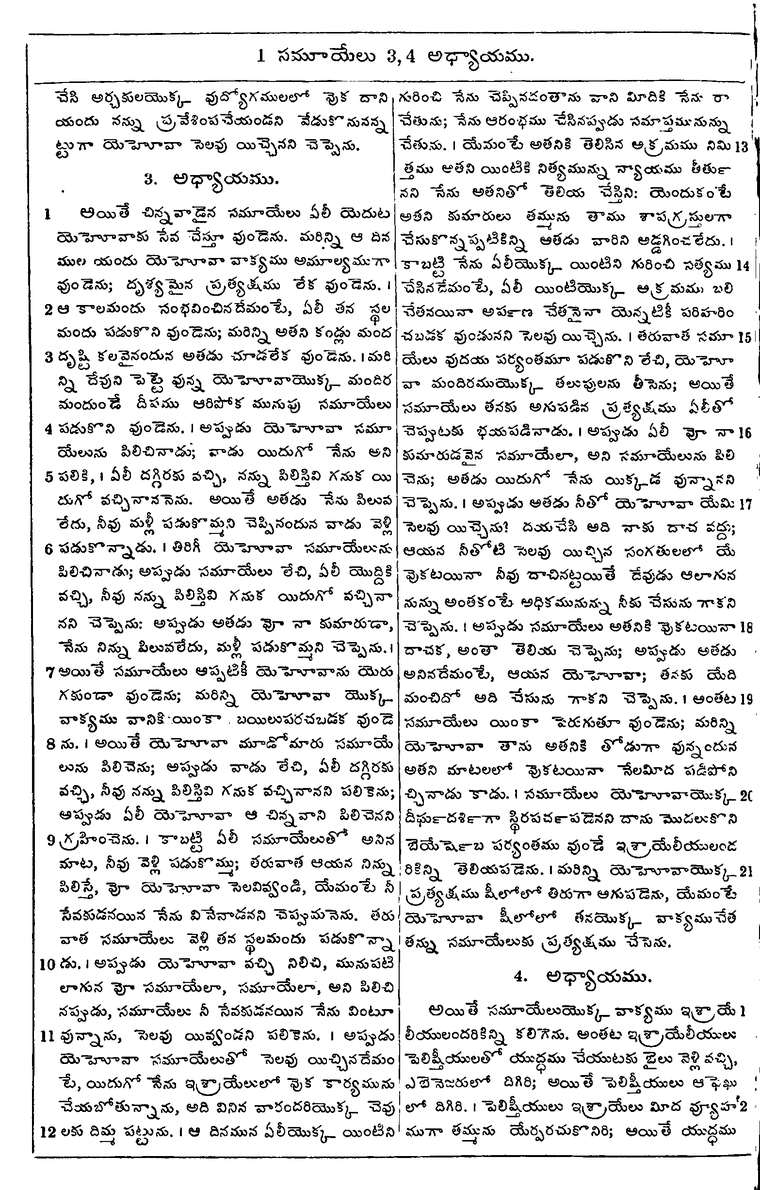 1 సమూయేలు 3, 4 అధ్యాయము.
చేసి అర్చకులయొక్క వుద్యోగములలో వౌక దాని
యందు నన్ను ప్రవేశింపచేయండని వేడుకొనునన్న
ట్టుగా యెహోవా సెలవు యిచ్చెనని చెప్పెను.
3. అధ్యాయము.
1 అయితే చిన్నవాడైన సమూయేలు ఏలీ యెదుట
యెహోవాకు సేవ చేస్తూ వుండెను. మరిన్ని ఆ దిన
ముల యందు యెహోవా వాక్యము అమూల్యముగా
వుండెను; దృశ్యమైన ప్రత్యక్షము లేక వుండెను. ।
2 ఆ కాలమందు సంభవించినదేమంటే, ఏలీ తన స్థల
మందు పడుకొని వుండెను; మరిన్ని అతని కండ్లు మంద
3 దృష్టి కలవైనందున అతడు చూడలేక వుండెను. । మరి
న్ని దేవుని పెట్టె వున్న యెహోవాయొక్క మందిర
మందుండే దీపము ఆరిపోక మునుపు సమూయేలు
4 పడుకొని వుండెను. । అప్పుడు యెహోవా సమూ
యేలును పిలిచినాడు; వాడు యిదుగో నేను అని
5 పలికి, । ఏలీ దగ్గిరకు వచ్చి, నన్ను పిలిస్తివి గనుక యి
దుగో వచ్చినాననెను. అయితే అతడు నేను పిలువ
లేదు, నీవు మళ్లీ పడుకొమ్మని చెప్పినందున వాడు వెళ్లి
6 పడుకొన్నాడు. । తిరిగీ యెహోవా సమూయేలును
పిలిచినాడు; అప్పుడు సమూయేలు లేచి, ఏలీ యొద్దికి
వచ్చి, నీవు నన్ను పిలిస్తివి గనుక యిదుగో వచ్చినా
నని చెప్పెను: అప్పుడు అతడు వో నా కుమారుడా,
నేను నిన్ను పిలువలేదు, మళ్లీ పడుకొమ్మని చెప్పెను. ।
7 అయితే సమూయేలు అప్పటికీ యెహోవాను యెరు
గకుండా వుండెను; మరిన్ని యెహోవా యొక్క
వాక్యము వానికి యింకా బయిలుపరచబడక వుండె
8 ను. । అయితే యెహోవా మూడోమారు సమూయే
లును పిలిచెను; అప్పుడు వాడు లేచి, ఏలీ దగ్గిరకు
వచ్చి, నీవు నన్ను పిలిస్తివి గనుక వచ్చినానని పలికెను;
అప్పుడు ఏలీ యెహోవా ఆ చిన్నవాని పిలిచెనని
9 గ్రహించెను. । కాబట్టి ఏలీ సమూయేలుతో అనిన
మాట, నీవు వెళ్లి పడుకొమ్ము; తరువాత ఆయన నిన్ను
పిలిస్తే, వో యెహోవా సెలవివ్వండి, యేమంటే నీ
సేవకుడనయిన నేను వినేనాడనని చెప్పుమనెను. తరు
వాత సమూయేలు వెళ్లి తన స్థలమందు పడుకొన్నా
10 డు. । అప్పుడు యెహోవా వచ్చి నిలిచి, మునుపటి
లాగున వో సమూయేలా, సమూయేలా, అని పిలిచి
నప్పుడు, సమూయేలు నీ సేవకుడనయిన నేను వింటూ
11 వున్నాను, సెలవు యివ్వండని పలికెను. । అప్పుడు
యెహోవా సమూయేలుతో సెలవు యిచ్చినదేమం
టే, యిదుగో నేను ఇశ్రాయేలులలో వౌక కార్యమును
చేయబోతున్నాను, అది వినిన వారందరియొక్క చెవు
12 లకు దిమ్మ పట్టును. । ఆ దినమున ఏలీయొక్క యింటిని
గురించి నేను చెప్పినదంతాను వాని మీదికి నేను రా
చేతును; నేను ఆరంభము చేసినప్పుడు సమాప్తమునున్ను
చేతును. । యేమంటే అతనికి తెలిసిన అక్రమము నిమి 13
త్తము అతని యింటికి నిత్యమున్ను న్యాయము తీతుర్‌
నని నేను అతనితో తెలియ చేస్తిని: యెందుకంటే
అతని కుమారులు తమ్మును తాము శాపగ్రస్తులగా
చేసుకొన్నప్పటికిన్ని అతడు వారిని అడ్డగించలేదు. ।
కాబట్టి నేను ఏలీయొక్క యింటిని గురించి సత్యము 14
చేసినదేమంటే, ఏలీ యింటియొక్క అక్రమము బలి
చేతనయినా అపర్ణ చేతనైనా యెన్నటికీ పరిహరిం
చబడక వుండునని సెలవు యిచ్చెను. । తరువాత సమూ 15
యేలు వుదయ పర్యంతమూ పడుకొని లేచి, యెహో
వా మందిరముయొక్క తలుపులను తీసెను; అయితే
సమూయేలు తనకు అగుపడిన ప్రత్యక్షము ఏలీతో
చెప్పుటకు భయపడినాడు. । అప్పుడు ఏలీ వో నా 16
కుమారుడవైన సమూయేలా, అని సమూయేలును పిలి
చెను; అతడు యిదుగో నేను యిక్కడ వున్నానని
చెప్పెను. । అప్పుడు అతడు నీతో యెహోవా యేమి 17
సెలవు యిచ్చెను? దయచేసి అది నాకు దాచ వద్దు;
ఆయన నీతోటి సెలవు యిచ్చిన సంగతులలో యే
వౌకటయినా నీవు దాచినట్టయితే దేవుడు ఆలాగున
నున్ను అంతకంటే అధికమునున్ను నీకు చేసును గాకని
చెప్పెను. । అప్పుడు సమూయేలు అతనికి వౌకటయినా 18
దాచక, అంతా తెలియ చెప్పెను; అప్పుడు అతడు
అనినదేమంటే, ఆయన యెహోవా; తనకు యేది
మంచిదో అది చేసును గాకని చెప్పెను. । అంతట 19
సమూయేలు యింకా పెరుగుతూ వుండెను; మరిన్ని
యెహోవా తాను అతనికి తోడుగా వున్నందున
అతని మాటలలో వౌకటయినా నేలమీద పడిపోని
చ్చినాడు కాడు. । సమూయేలు యెహోవాయొక్క 20
దీర్ఘదర్శిగా స్థిరపర్చపడెనని దాను మొదలుకొని
బెయేర్షెబ పర్యంతము వుండే ఇశ్రాయేలీయులంద
రికిన్ని తెలియపడెను. । మరిన్ని యెహోవాయొక్క 21
ప్రత్యక్షము షీలోలో తిరుగా అగుపడెను, యేమంటే
యెహోవా షీలోలో తనయొక్క వాక్యముచేత
తన్ను సమూయేలుకు ప్రత్యక్షము చేసెను.
4. అధ్యాయము.
అయితే సమూయేలుయొక్క వాక్యము ఇశ్రాయే 1
లీయులందరికిన్ని కలిగెను. అంతట ఇశ్రాయేలీయులు
పెలిష్తీయులతో యుద్ధము చేయుటకు బైలు వెళ్లి వచ్చి,
ఎబెనెజరులో దిగిరి; అయితే పెలిష్తీయులు ఆఫెఖు
లో దిగిరి. । పెలిష్తీయులు ఇశ్రాయేలు మీద వ్యూహ 2
ముగా తమ్మును యేర్పరచుకొనిరి; అయితే యుద్ధము